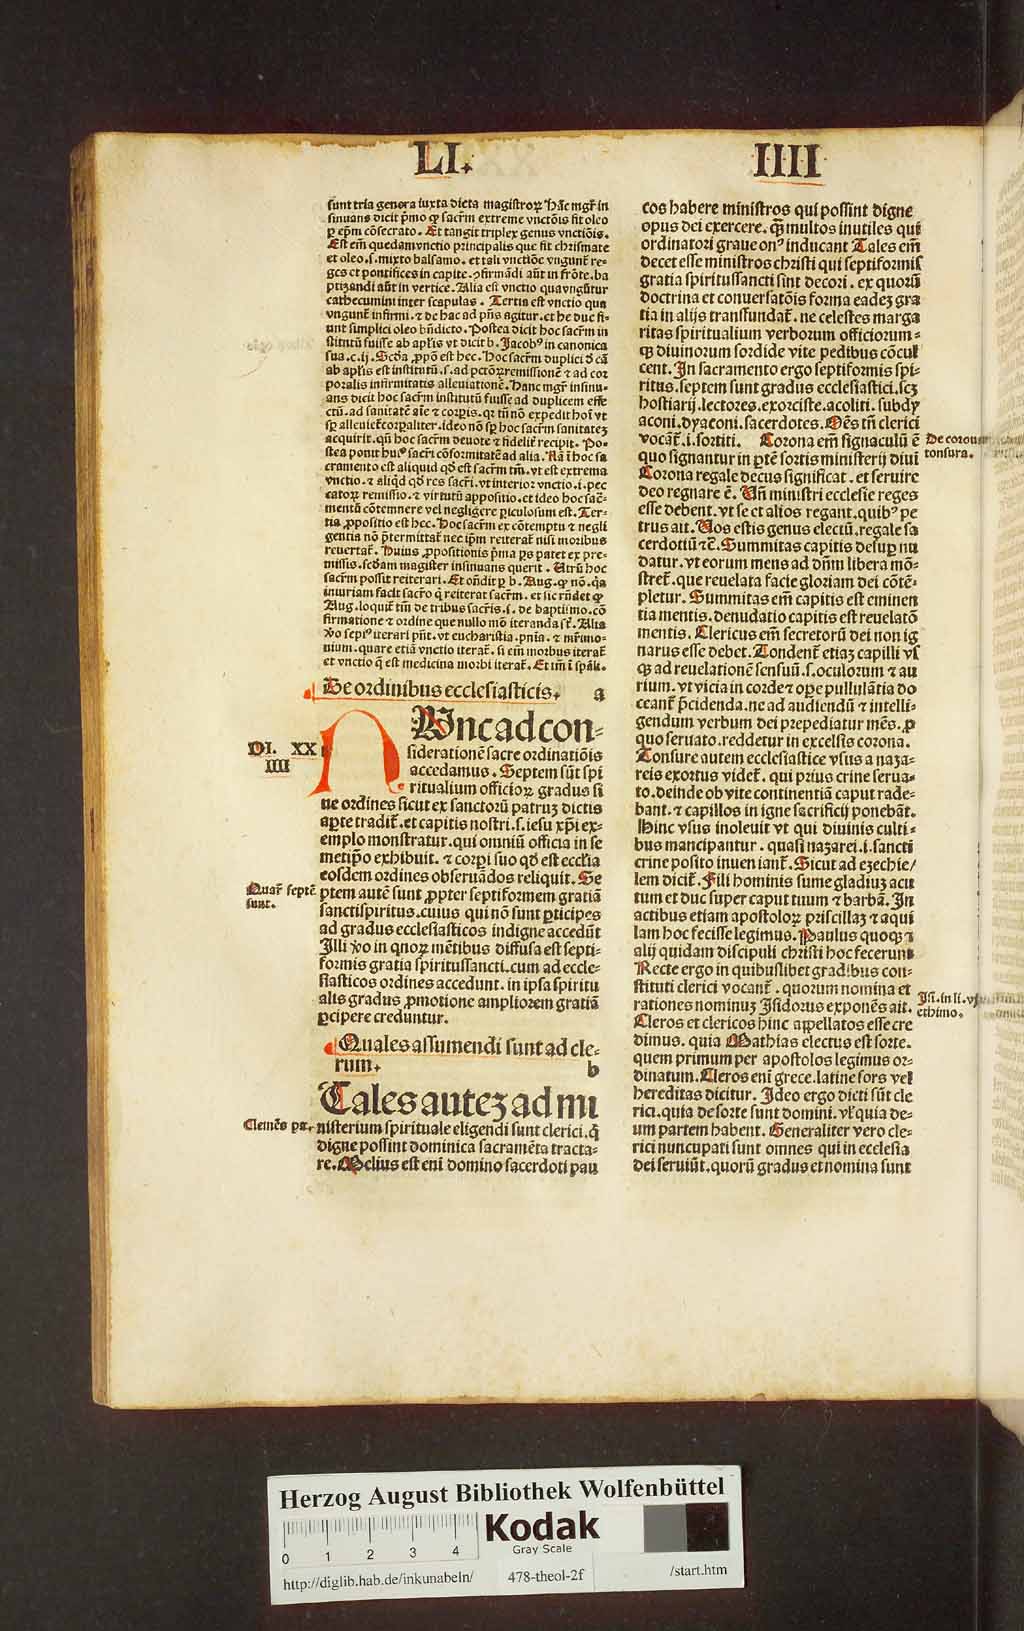 LI.
IIII
sunt tria genera iuxta dicta magistroꝝ Hāc mgr̄ in
sinuans dicit p̄mo ꝙ sacr̄m extreme vnctōis fit oleo
ꝑ ep̄m cōsecrato. Et tangit triplex genus vnctiōis.
Est em̄ quedam vnctio principalis que fit chrismate
et oleo.s.mixto balsamo.et tali vnctiōe vngunt̄ re-
ges et pontifices in capite.ꝯfirmādi aūt in frōte.ba
ptizandi aūt in vertice. Alia est vnctio qua vngūtur
cathecumini inter scapulas. Tertia est vnctio qua
vngunt̄ infirmi.⁊ de hac ad p̄ns agitur.et he due fi-
unt simplici oleo bn̄dicto. Postea dicit hoc sacr̄m in
stitutū fuisse ab apl̄is vt dicit b. Jacobꝰ in canonica
sua.c.ij. Scd̄a ꝓpō est hec. Hoc sacr̄m duplici d̄ cā
ab apl̄is est institutū.s.ad pctōꝝ remissionē ⁊ ad cor
poralis infirmitatis alleuiationē. Hanc mgr̄ insinu-
ans dicit hoc sacr̄m institutū fuisse ad duplicem effe
ctū.ad sanitatē aīe ⁊ corꝑis.qr tn̄ nō expedit hoī vt
sꝑ alleuiet̄ corꝑaliter.ideo nō sꝑ hoc sacr̄m sanitateꝫ
acquirit.qn̄ hoc sacr̄m deuote ⁊ fidelit̄ recipit. Po-
stea ponit huiꝰ sacr̄i cōformitatē ad alia. Nā ī hoc sa
cramento est aliquid qd̄ est sacr̄m tm̄.vt est extrema
vnctio.⁊ aliqd̄ qd̄ res sacr̄i.vt interior vnctio.i.pec
catoꝝ remissio.⁊ virtutū appositio.et ideo hoc sacr̄-
mentū cōtemnere vel negligere ꝑiculosum est. Ter-
tia ꝓpositio est hec. Hoc sacr̄m ex cōtemptu ⁊ negli
gentia nō p̄termittat̄ nec ip̄m reiterat̄ nisi moribus
reuertat̄. Huius ꝓpositionis p̄ma ps patet ex pre-
missis.scd̄am magister insinuans querit. Utrū hoc
sacr̄m possit reiterari. Et oñdit ꝑ b. Aug.ꝙ nō.qa
iniuriam facit sacr̄o q̄ reiterat sacr̄m.et sic rn̄det ꝙ
Aug.loquit̄ tm̄ de tribus sacr̄is.s.de baptismo.cō
firmatione ⁊ ordine que nullo mō iteranda st̄. Alia
ṽo sepiꝰ iterari pn̄t.vt eucharistia.pn̄ia.⁊ mr̄imo-
nium.quare etiā vnctio iterat̄.si em̄ morbus iterat̄
et vnctio q̄ est medicina morbi iterat̄. Et im̄ ī sp̄ali.
De ordinibus ecclesiasticis. a
DI. XX
IIII
NUnc ad con-
siderationē sacre ordinatiōis
accedamus. Septem sūt spi
ritualium officioꝝ gradus si
ue ordines sicut ex sanctorū patruꝫ dictis
aꝑte tradit̄.et capitis nostri.s.iesu xp̄i ex-
emplo monstratur.qui omniū officia in se
metip̄o exhibuit.⁊ corꝑi suo qd̄ est eccl̄ia
eosdem ordines obseruādos reliquit. Se
Quar̄ septē
sunt.
ptem autē sunt ꝓpter septiformem gratiā
sancti spiritus.cuius qui nō sunt ꝑticipes
ad gradus ecclesiasticos indigne accedūt
Illi ṽo in quoꝝ mētibus diffusa est septi-
formis gratia spiritussancti.cum ad eccle-
siasticos ordines accedunt.in ipsa spiritu
alis gradus ꝓmotione ampliorem gratiā
ꝑcipere creduntur.
Quales assumendi sunt ad cle-
rum. b
Tales auteꝫ ad mi
Clemēs pꝫ.
nisterium spirituale eligendi sunt clerici.q̄
digne possint dominica sacramēta tracta-
re. Melius est enī domino sacerdoti pau
cos habere ministros qui possint digne
opus dei exercere.ꝙ̄ multos inutiles qui
ordinatori graue onꝰ inducant Tales em̄
decet esse ministros christi qui septiformis
gratia spiritussancti sint decori.ex quorū
doctrina et conuersatōis forma eadeꝫ gra
tia in alijs transfundat̄.ne celestes marga
ritas spiritualium verborum officiorum-
qꝫ diuinorum sordide vite pedibus cōcul
cent. In sacramento ergo septiformis spi-
ritus.septem sunt gradus ecclesiastici.scꝫ
hostiarij.lectores.exorciste.acoliti.subdy
aconi.dyaconi.sacerdotes. Oēs tn̄ clerici
vocāt̄.i.sortiti. Corona em̄ signaculū ē
De corona
tonsura.
quo signantur in ꝑtē sortis ministerij diuī
Corona regale decus significat.et seruire
deo regnare ē. Uñ ministri ecclesie reges
esse debent.vt se et alios regant.quibꝰ pe
trus ait. Uos estis genus electū.regale sa
cerdotiū ⁊c̄. Summitas capitis desuꝑ nu
datur.vt eorum mens ad dn̄m libera mō-
stret̄.que reuelata facie gloriam dei cōtē-
pletur. Summitas em̄ capitis est eminen
tia mentis.denudatio capitis est reuelatō
mentis. Clericus em̄ secretorū dei non ig
narus esse debet. Tondent̄ etiaꝫ capilli vs
qꝫ ad reuelationē sensuū.s.oculorum ⁊ au
rium.vt vicia in corde ⁊ oꝑe pullulātia do
ceant̄ p̄cidenda.ne ad audiendū ⁊ intelli-
gendum verbum dei prepediatur mēs.ꝓ
quo seruato.reddetur in excelsis corona.
Tonsure autem ecclesiastice vsus a naza-
reis exortus videt̄.qui prius crine serua-
to.deinde ob vite continentiā caput rade-
bant.⁊ capillos in igne sacrificij ponebāt.
Hinc vsus inoleuit vt qui diuinis culti-
bus mancipantur.quasi nazarei.i.sancti
crine posito inueniant̄. Sicut ad ezechie/
lem dicit̄. Fili hominis sume gladiuꝫ acu
tum et duc super caput tuum ⁊ barbā. In
actibus etiam apostoloꝝ priscillaꝫ ⁊ aqui
lam hoc fecisse legimus. Paulus quoqꝫ ⁊
alij quidam discipuli christi hoc fecerunt
Recte ergo in quibuslibet gradibus con-
stituti clerici vocant̄.quorum nomina et
Isi.in li.vj
ethimo.
rationes nominuꝫ Isidorus exponēs ait.
Cleros et clericos hinc appellatos esse cre
dimus.quia Mathias electus est sorte.
quem primum per apostolos legimus or-
dinatum. Cleros enī grece.latine sors vel
hereditas dicitur. Ideo ergo dicti sūt cle
rici.quia de sorte sunt domini.vl̄ quia de-
um partem habent. Generaliter vero cle-
rici nuncupati sunt omnes qui in ecclesia
dei seruiūt.quorū gradus et nomina sunt
Herzog August Bibliothek Wolfenbüttel
0 1 2 3 4
Kodak
Gray Scale
http://diglib.hab.de/inkunabeln/ 478-theol-2f /start.htm